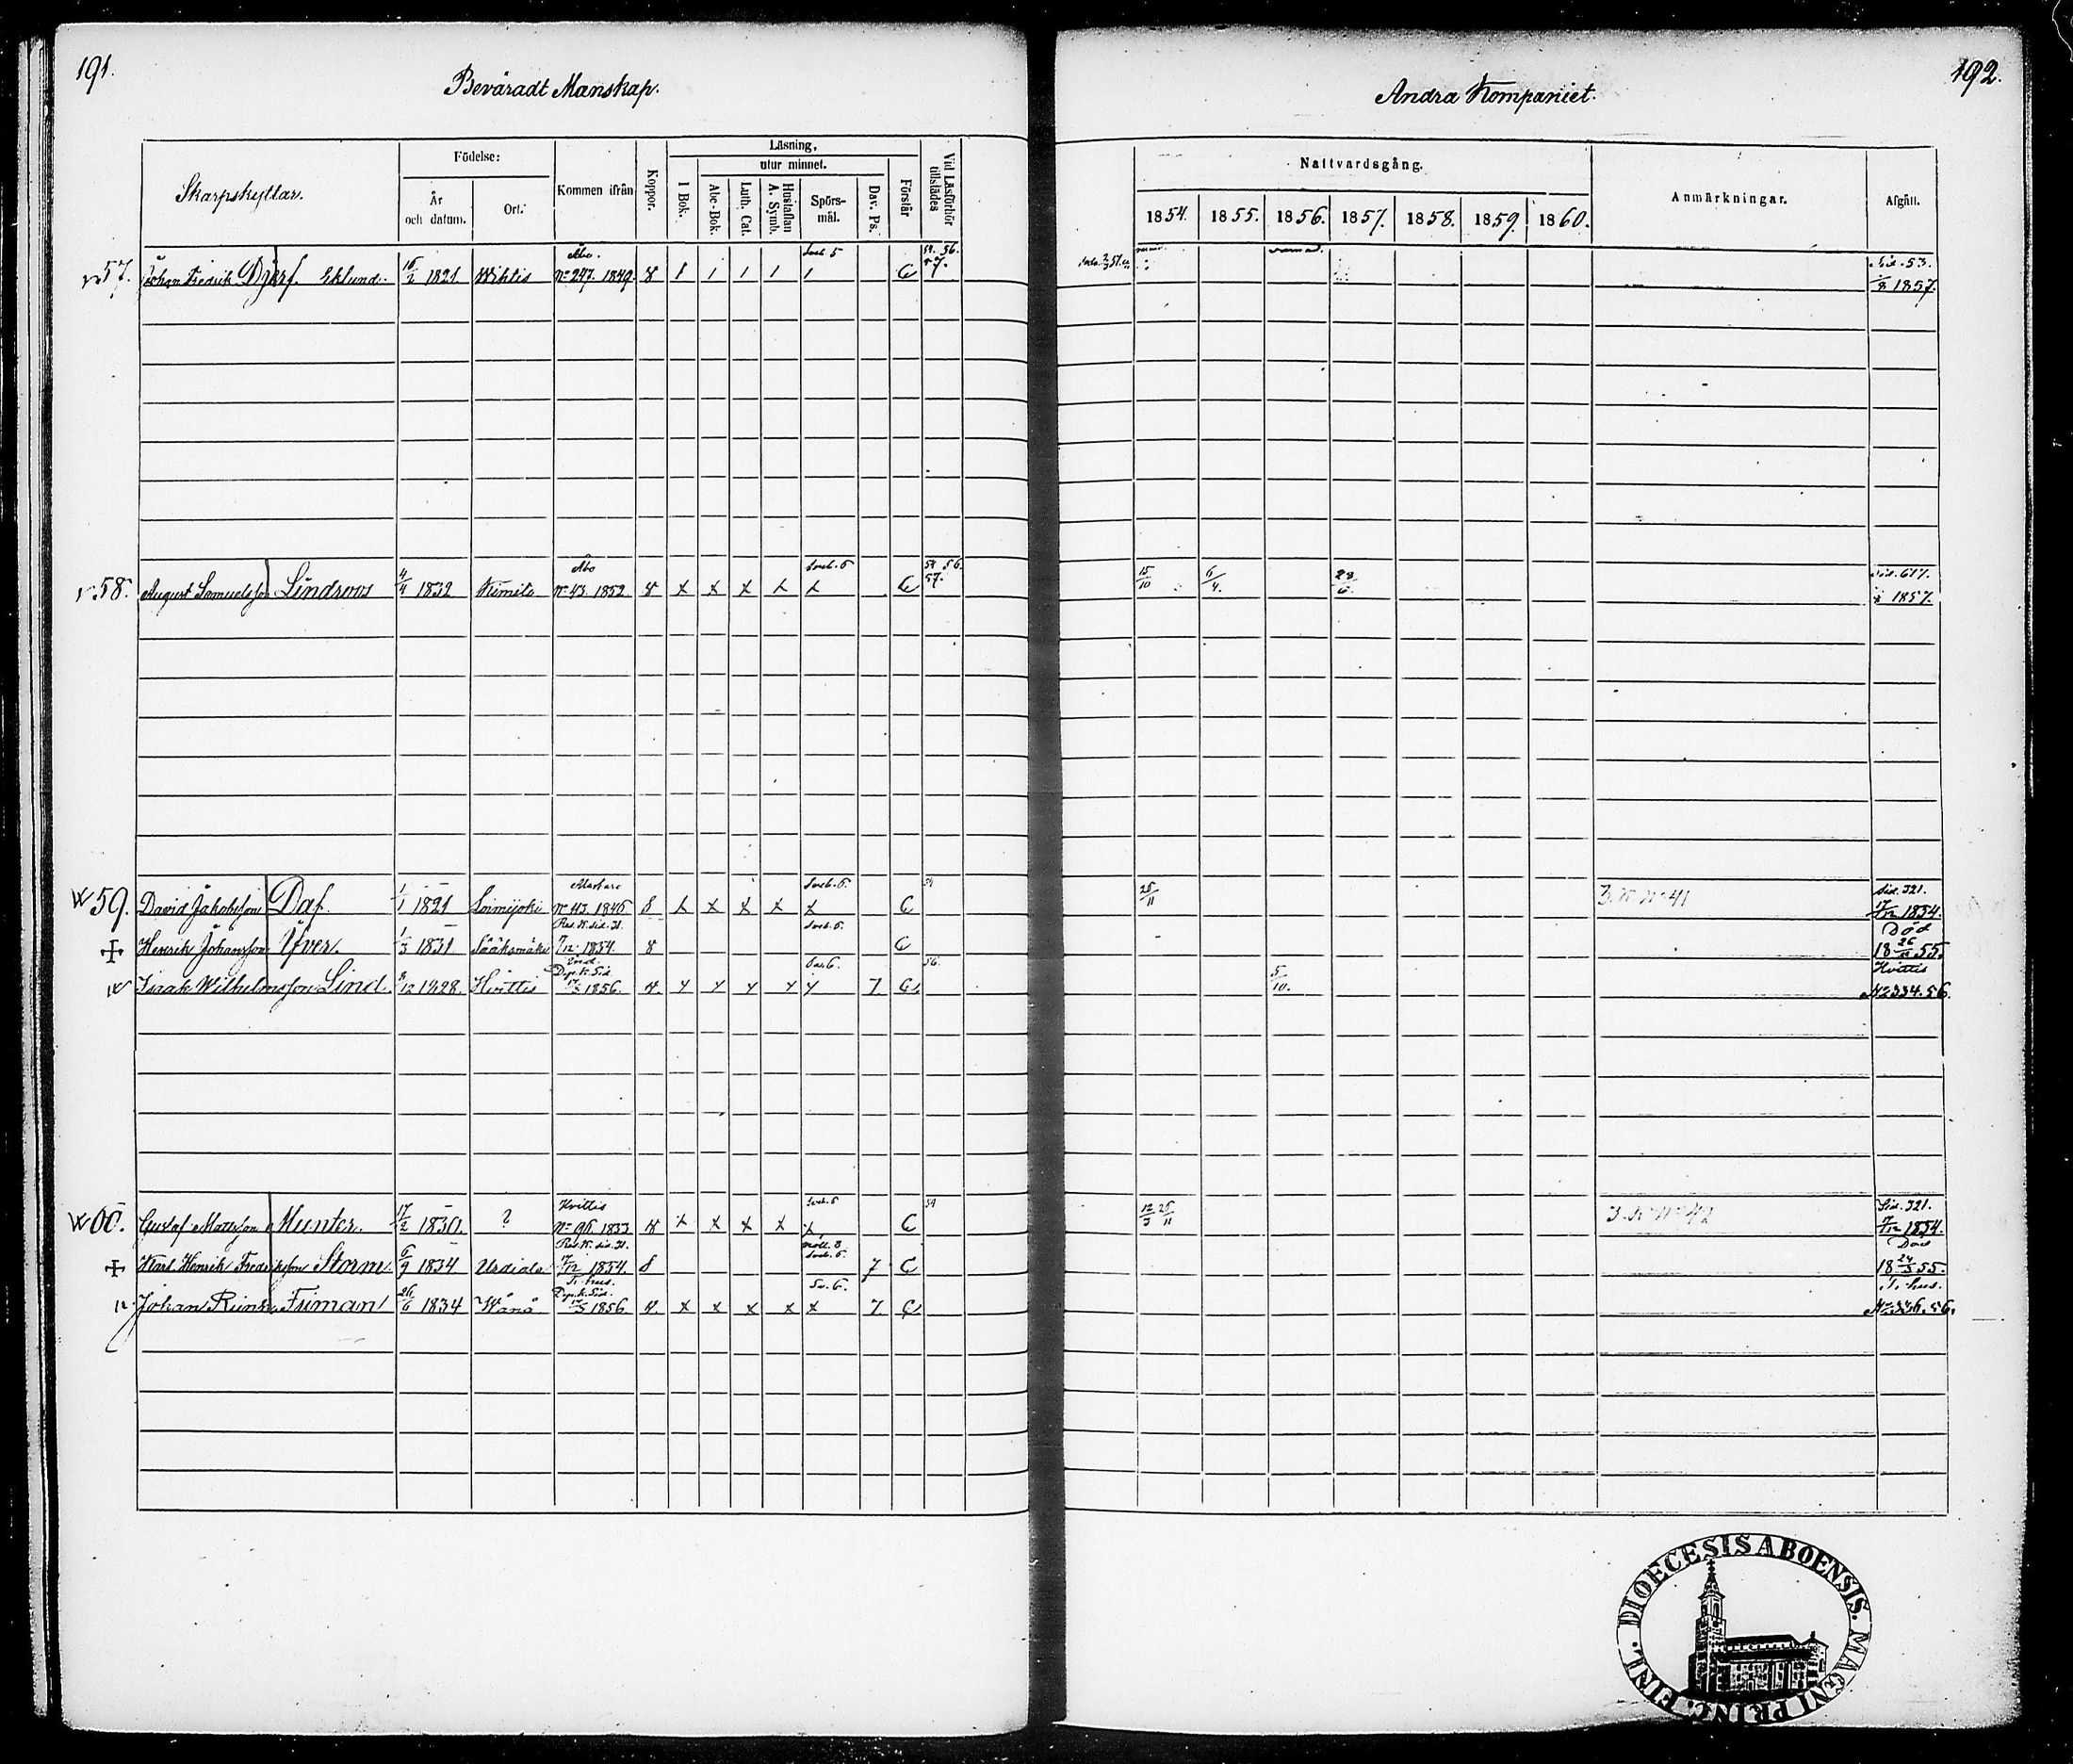 191.
Bevåradt Manskap.
Skarpskyttar.
Födelse:
År och datum.
Ort.
Kommen ifrån
Koppor.
Läsning,
utur minnet.
I Bok.
Abc-Bok.
Luth. Cat.
Hustaflan A. Symb.
Spörs-mål.
Dav. Ps.
Förstår
Vid Läsförhör tillstädes
Åbo. Sveb. 5 54. 56.
57. Johan Fredrik Djerf. Eklund. 16/2 1821. Wihtis No 247. 1849. 8 1 1 1 1 1 C 57.
Åbo Sveb. 5 54 56.
58. August Samuelsson Lindroos 4/4 1832 Kimito No 43. 1852 C 57.
Sveb. 5. 54
59. David Jakobsson Daf. 1/1 1821 Loimijoki No 43. 1846 8 x x x x x C
Res. K. sid. 31. Sveb. 5.
Henrik Johansson Ufver. 1/3 1831. Sääksmäki 7/12 1854. 8 C
Dep. K. Sid. Sv. 6. 56.
Isaak Wilhelmsson Lind. 8/12 1828. Hvittis 1856. C
Hvittis Sveb. 5 54
60. Gustaf Matsson Munter. 17/2 1830. ? No 96. 1853. x x x x x C
Res. K. sid. 31. Sveb. 5.
Karl Henrik Fredriksson Storm 6/9 1834 Urdiala 7/12 1854. 8 7 C
T. hus. Dep. K. Sid. Sv. 6.
Johan Friman 26/6 1834 Wånå 1856. x x x x x 7 C
192.
Andra Kompaniet.
Nattvardsgång.
1854. 1855. 1856. 1857. 1858. 1859. 1860.
Anmärkningar.
Afgått.
Sid. 53.
1857.
15/10 6/4. 28/6. Sid. 617.
1857.
25/11 3. K. No 41 Sid. 321.
7/12 1854.
Död
18 26/11 55.
Hvittis
5/10. No 334. 56.
12/3 25/11 3. K. No 42 Sid. 321.
7/12 1854.
Död
18 24/5 55.
T. hus.
No 336. 56.
DIOECESIS ABOENSIS. MAGNI PRINC. FINL.